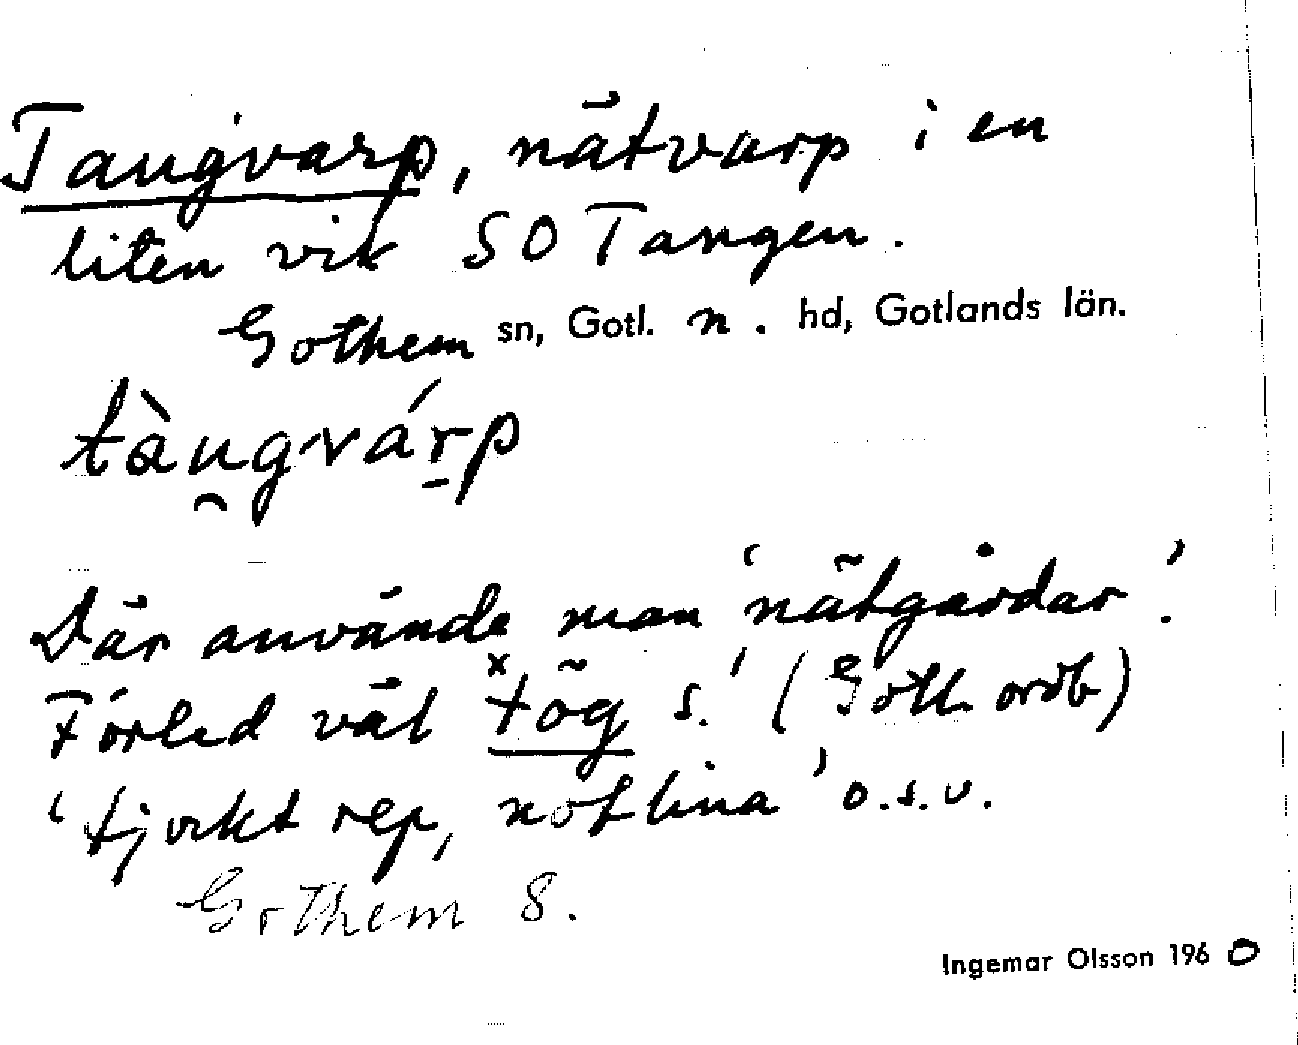 Taugvarp, nätvarp i en
liten vik SO Tangen.
Gothem sn, Gotl. n. hd, Gotlands län.
tàu̯gvár̲p
Där använde man 'nätgårdar'.
Förled väl ×tög s.' (Goth. ordb)
'tjockt rep, notlina' o.s.v.
Gothem 8.
Ingemar Olsson 1960